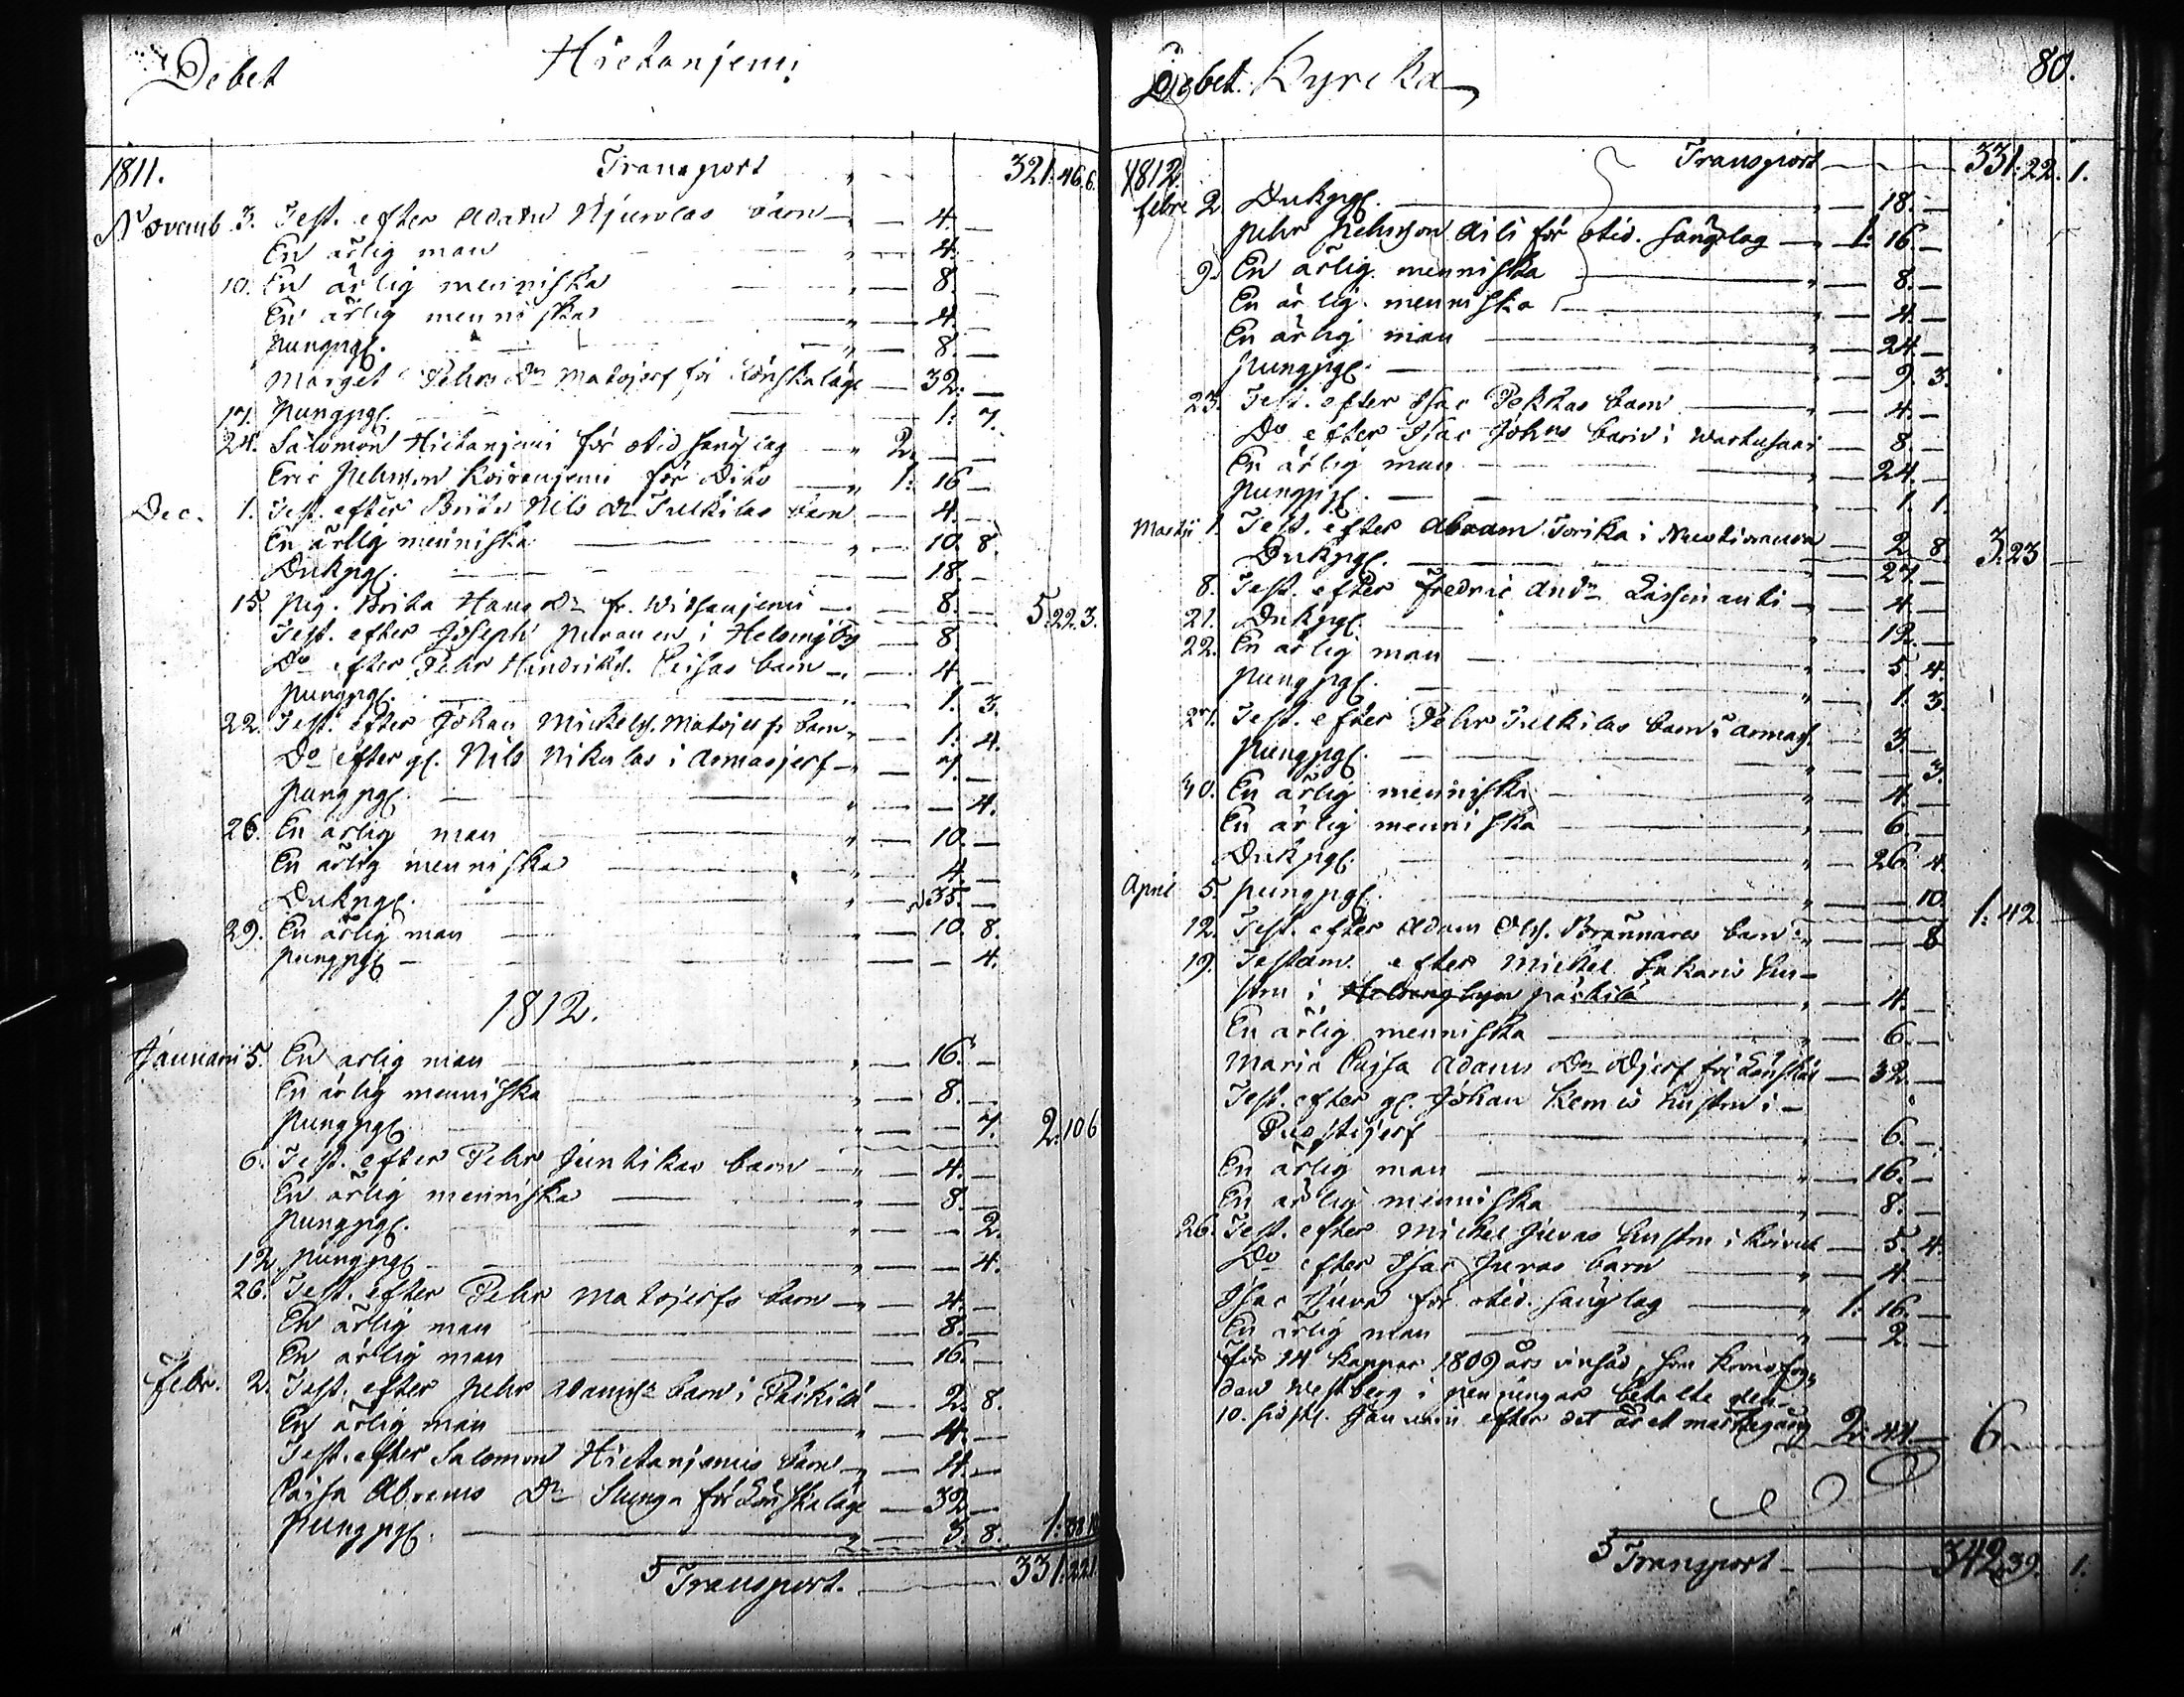 Debet Hietaniemi
1811. Transport 321. 46. 6.
Novemb. 3. Test. efter Adam Njurolas barn 4. —
En ärlig man 4. —
10. En ärlig menniska 8. —
En ärlig menniska 4. —
pungpgr. 8. —
Marget Pehrs Dr Matojerf för Lönskaläge 32. —
17. pungpgr. 1. 7.
24. Salomon Hietaniemi för otid. sänglag 2. — —
Eric Pehrson Koiraniemi för Dito 1: 16 —
Dec. 1. Test. efter Brita Nils Dr Tulkilas barn 4. —
En ärlig menniska 10. 8.
Dukpgr. 18. —
15. pig. Brita Hans Dr fr. Witsaniemi 8. — 5. 22. 3.
Test. efter Joseph Puranen i Helsingby 8.
Do efter Pehr Hindriks. Caisas barn 4. —
pungpgr. 1. 3.
22. Test. efter Johan Mickels. Matojerfs barn 1. 4.
Do efter gl. Nils Nikulas i Armasjerf 7. —
pungpgr. — 4.
26. En ärlig man 10. —
En ärlig menniska 4. —
Dukpgr. 35. —
29. En ärlig man 10. 8.
pungpgr. — 4.
1812.
Januarii 5. En ärlig man 16. —
En ärlig menniska 8. —
pungpgr. — 7. 2. 10 6
6. Test. efter Pehr Juntikas barn 4. —
En ärlig menniska 8. —
pungpgr. — 2.
12. pungpgr. — 4.
26. Test. efter Pehr Matojerfs barn 4. —
En ärlig man 8. —
En ärlig man 16. —
Febr. 2. Test. efter Pehr Adams. barn i Päckilä 2. 8.
En ärlig man 4. —
Test. efter Salomon Hietaniemis barn 4. —
Caisa Abrams Dr Slunga för Lönskaläge 32. —
pungpgr. 3. 8. 1: 38 10
Transport. 331. 22. 1.
Debet. Kyrcka 80.
1812 Transport 331: 22. 1.
febr. 2. Dukpgr. 18. —
Pehr Pehrson Aili för otid. sänglag 1: 16 —
9. En ärlig menniska 8. —
En ärlig menniska 4. —
En ärlig man 24 —
pungpgr. 9. 3.
23. Test. efter Isac Pekkas barn 4. —
Do efter Isac Johns barn i Wartusaari 8. —
En ärlig man 24. —
pungpgr. 1. 1.
Martii 1. Test. efter Abram Torika i 2. 8 3. 23 —
Dukpgr. 27. —
8. Test. efter Fredric And. 4. —
21. Dukpgr. 12. —
22. En ärlig man 5. 4.
pungpgr. 1. 3.
27. Test. efter Pehr Tulkilas barn i Armasj. 3. —
pungpgr. — 3.
30. En ärlig menniska 4. —
En ärlig menniska 6. —
Dukpgr. 26 4.
April 5. pungpgr. — 10. 1: 42. —
12. Test. efter Adam Ols. Brännares barn — 8
19. Testam. efter Michel Lukaris hu-
stru i Helsingbyn päckilä 4. —
En ärlig menniska 6. —
Maria Caisa Adams Dr Djerf för Lönskal. 32. —
Test. efter gl. Johan Kemis hustru i
Puostijerf 6. —
En ärlig man 16. —
En ärlig menniska 8. —
26. Test. efter Michel Juvas hustru i Koivuk. 5. 4.
Do efter Isac Juvas barn 4 —
Isac Juva för otid. sänglag 1: 16. —
En ärlig man 2. —
för 14 kappar 1809 års insåd, som Kronofog-
den Westberg i penningar betalte den
10. sidstl. Januarii efter det året markegång 2: 44. — 6. — —
Transport 342. 39. 1.